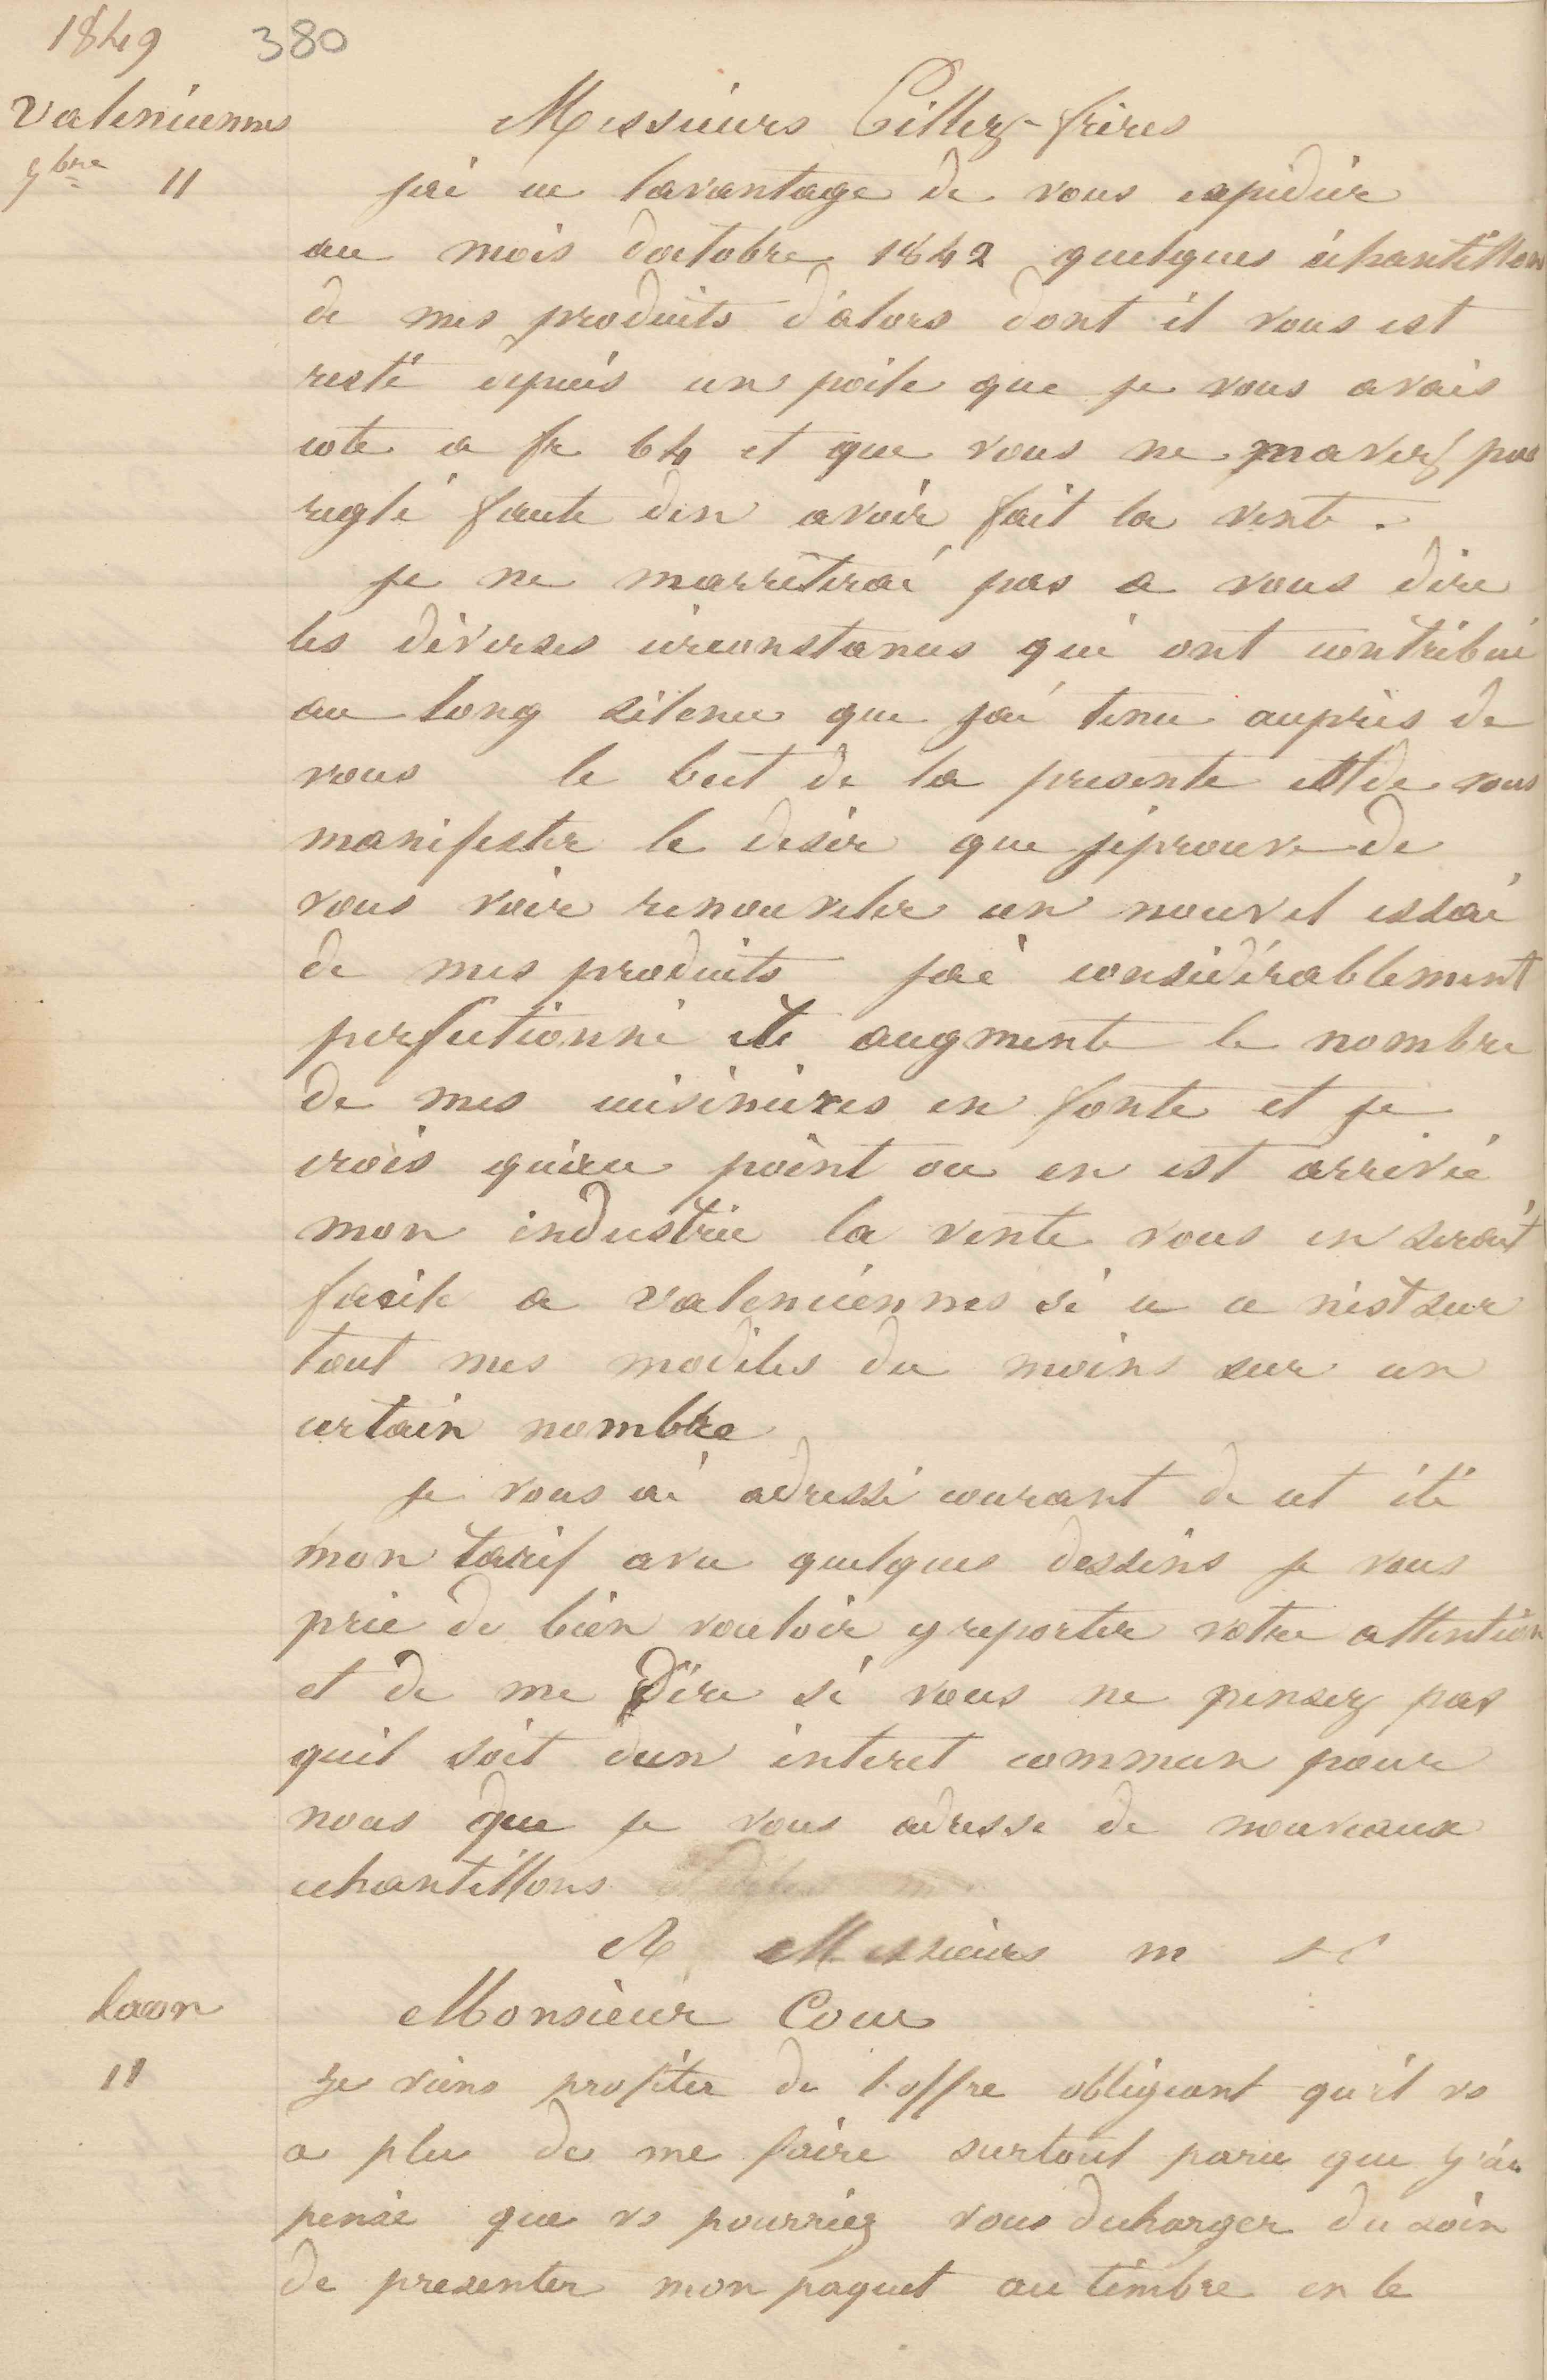 1849 380
Valenciennes
9bre 11
Messieurs Pillez-frères
jai eu lavantage de vous expedier
au mois doctobre 1842 quelques échantillons
de mes produits d'alors dont il vous est
resté depuis un poële que je vous avais
coté a fr 64 et que vous ne mavez pas
reglé faute den avoir fait la vente.
je ne marrèterai pas a vous dire
les diverses circonstances qui ont contribué
au long silence que jai tenu auprès de
vous le but de la presente est de vous
manifester le desir que jéprouve de
vous voir renouveler un nouvel essai
de mes produits jai considérablement
perfectionné et augmenté le nombre
de mes cuisinieres en fonte et je
crois quau point ou en est arrivée
mon industrie la vente vous en serait
facile a valenciennes si ce ce n'est sur
tout mes modèles du moins sur un
certain nombre
je vous ai adressé courant de cet été
mon tarif avec quelques dessins je vous
prie de bien vouloir y reporter votre attention
et de me dire si vous ne pensez pas
quil soit dun interet commun pour
nous que je vous adresse de nouveaux
echantillons
Messieurs m
Laon
11
Monsieur Cour
Je viens profiter de l'offre obligeant qu'il vs
a plu de me faire surtout parce que j'ai
pensé que vs pourriez vous décharger du soin
de presenter mon paquet au timbre en le